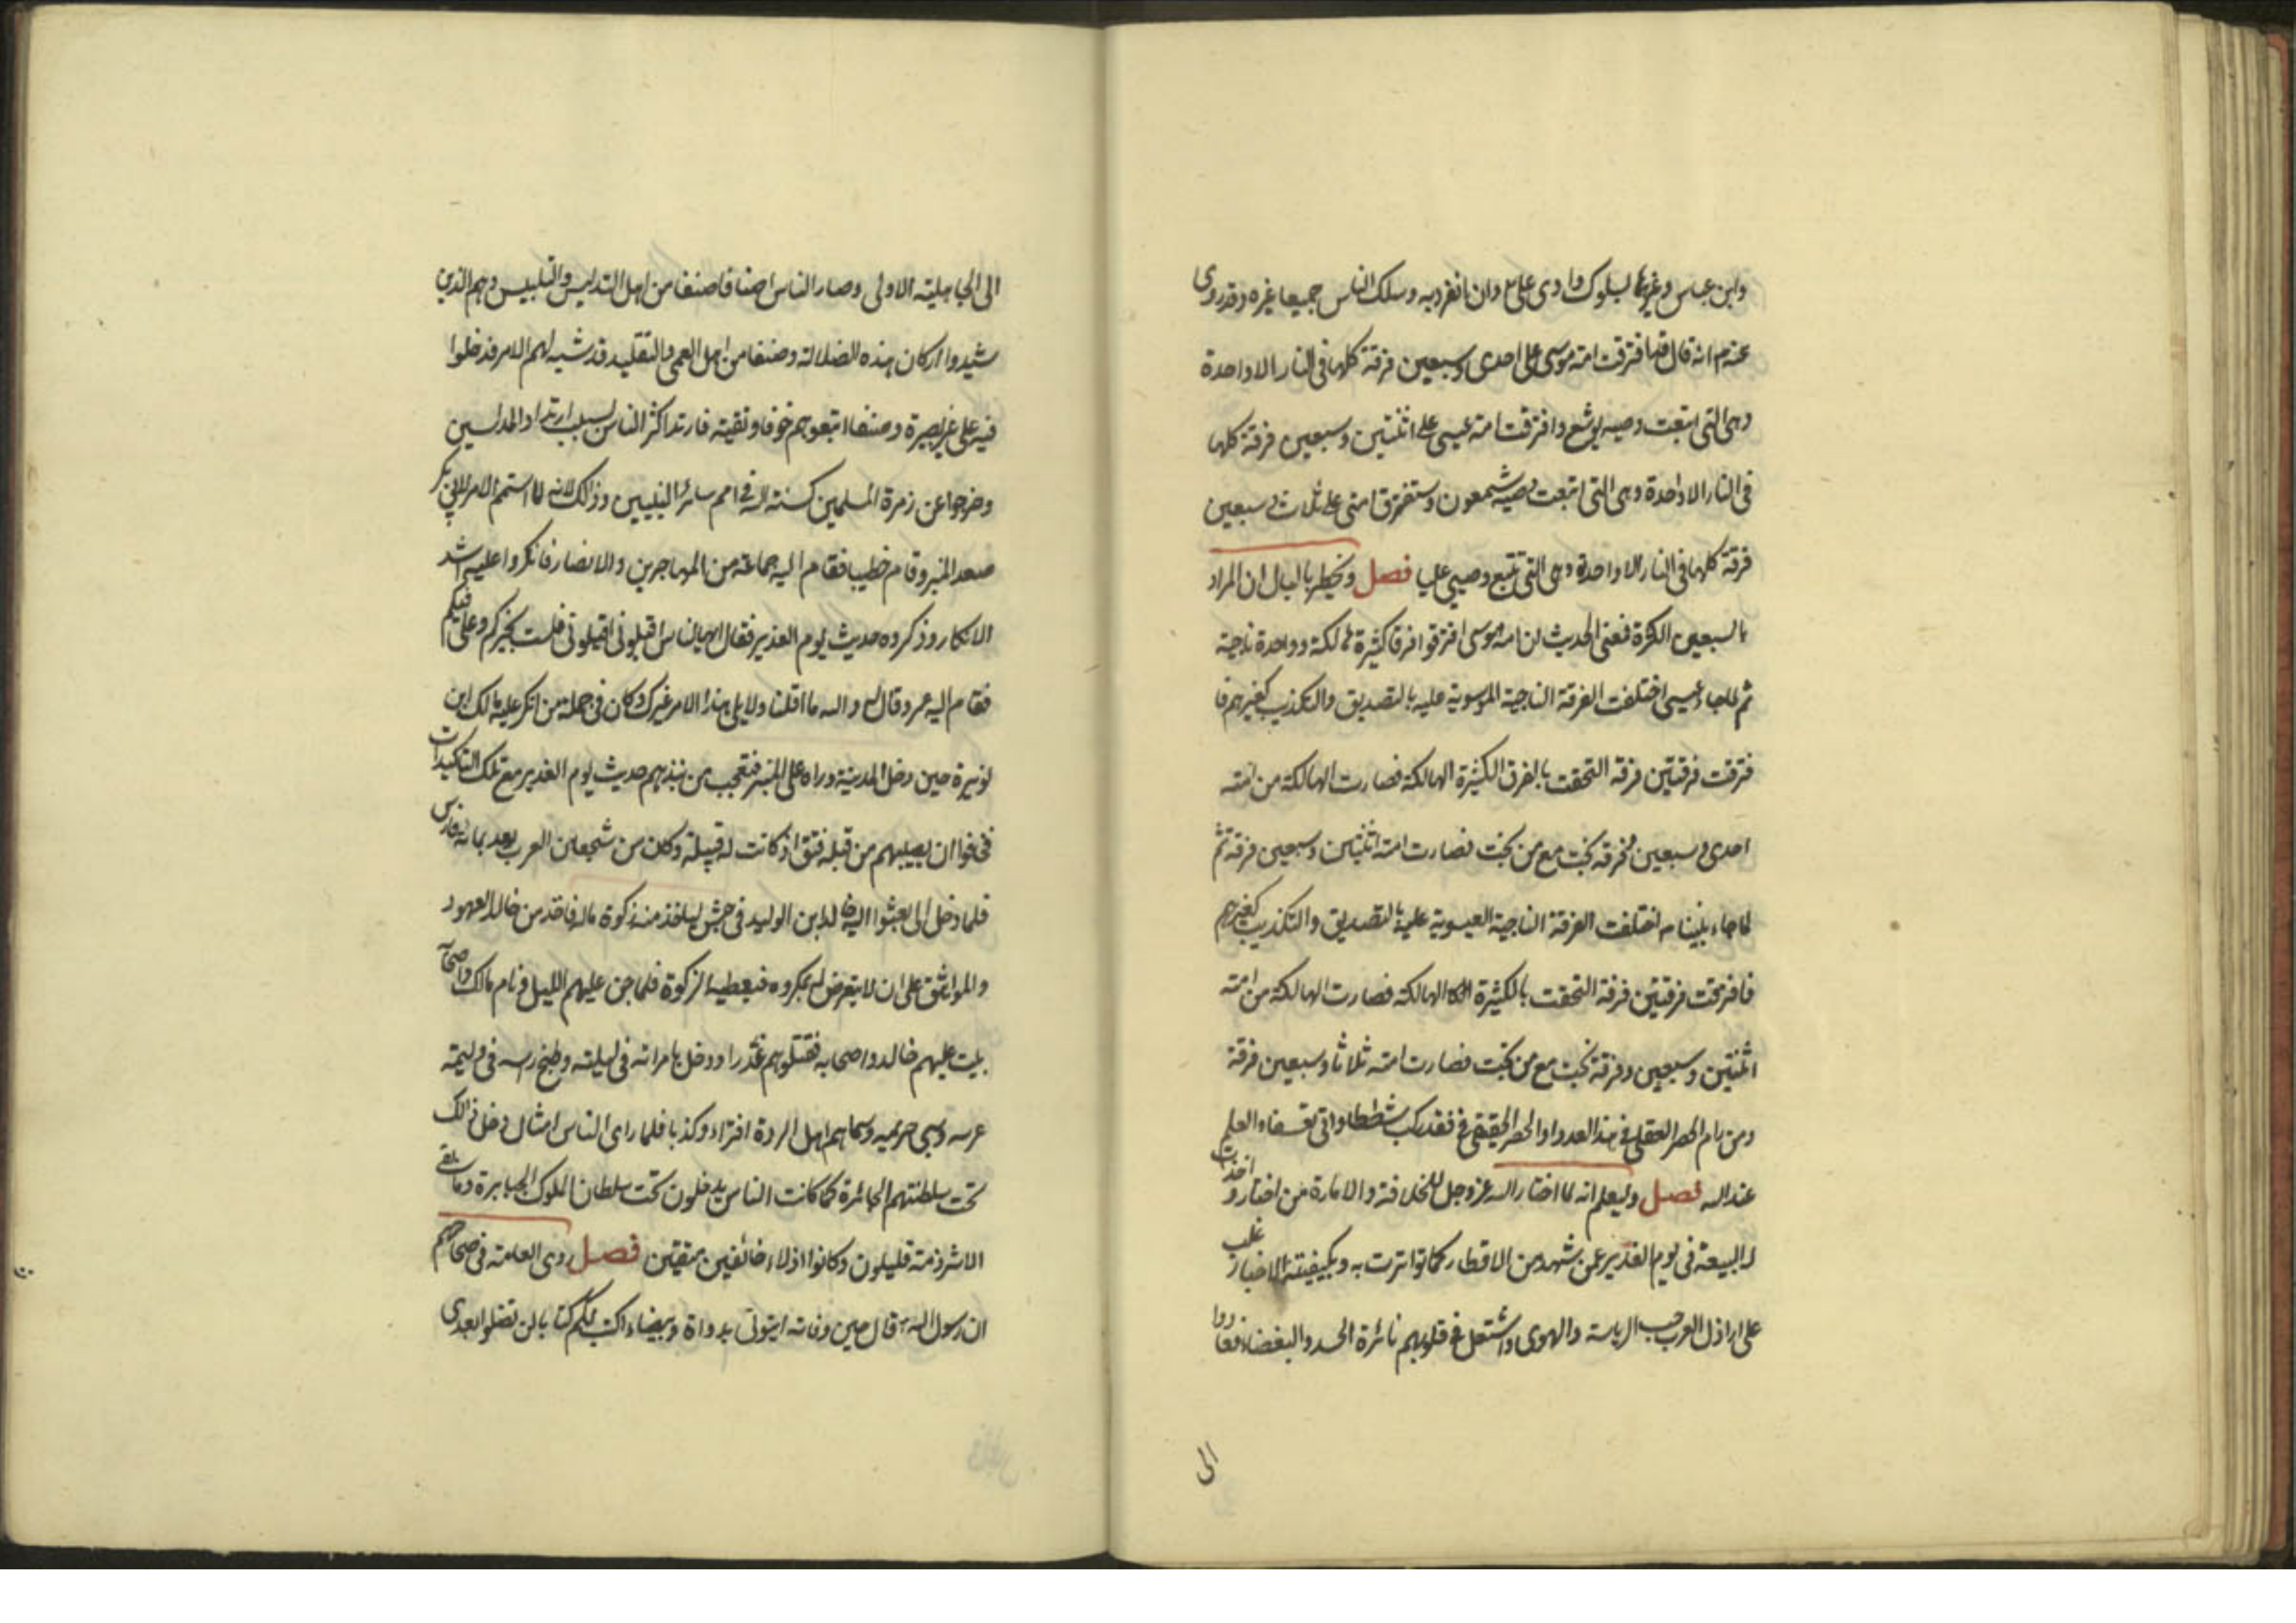 وابن عباس وغيرهما لسلوك وادى على ع وان انفرد به وسلك الناس جميعا غيره وقد روى
عنه ص انه قال فيها افترقت امته موسى على احدى وسبعين فرقة كلها فى النار الا واحدة
وهى التى اتبعت وصيه يوشع وافترقت امته عيسى على اثنتين وسبعين فرقة كلها
فى النار الا واحدة وهى التى اتبعت وصيه شمعون وستفترق امتى على ثلاث وسبعين
فرقة كلها فى النار الا واحدة وهى التى تتبع وصيى عليا فصل ويخطر بالبال ان المراد
بالسبعين الكثرة فمعنى الحديث ان امه موسى افترقوا فرقا كثيرة هالكة وواحدة ناجية
ثم لما جاء عيسى اختلفت الفرقة الناجية الموسوية عليه بالتصديق والتكذيب كغيرهم فا
فترقت فرقتين فرقة التحقت بالفرق الكثيرة الهالكة فصارت الهالكة من امته
احدى وسبعين وفرقة نجت مع من نجت فصارت امته اثنتين وسبعين فرقة ثم
لما جاء نبينا ص اختلفت الفرقة الناجية العيسوية عليه بالتصديق والتكذيب كغيرهم
فافترقت فرقتين فرقة التحقت بالكثيرة الهالكة فصارت الهالكة من امته
اثنتين وسبعين وفرقة نجت مع من نجت فصارت امته ثلاثا وسبعين فرقة
ومن رام الحصر العقلى فى هذا العدد او الحصر الحقيقى فقد ركب شططا واتى تعسفا والعلم
عند الله فصل وليعلم انه لما اختار الله عز وجل للخلافة والامارة من اختار واخذت
له البيعة فى يوم الغدير عمن شهد من الاقطار كما تواترت به وبكيفيته الاخبار غلب
على اراذل العرب حب الرياسة والهوى واشتعل فى قلوبهم نائرة الحسد والبغضاء فعادوا
الى
الى الجاهلية الاولى وصار الناس اصنافا صنفا من اهل التدليس والتلبيس وهم الذين
شيدوا اركان هذه الضلالة وصنفا من اهل العمى والتقليد قد شبه لهم الامر فدخلوا
فيه على غير بصيرة وصنفا اتبعوهم خوفا وتقية فارتد اكثر الناس بسبب ارتداد المدلسين
وخرجوا عن زمرة المسلمين كسنة الله فى امم سائر النبيين وذلك لانه لما استتم الامر لابى بكر
صعد المنبر وقام خطيبا فقام اليه جماعة من المهاجرين والانصار فانكروا عليه اشد
الانكار وذكروه حديث يوم الغدير فقال ايها الناس اقيلونى اقيلونى فلست بخيركم وعلى فيكم
فقام اليه عمر وقال والله ما اقلنا ولا يلى هذا الامر غيرك وكان فى جملة من انكر عليه مالك ابن
نويرة حين دخل المدينة وراه على المنبر فتعجب من نبذهم حديث يوم الغدير مع تلك التاكيدات
فخافوا ان يصيبهم من قبله فتق اذ كانت له قبيلة وكان من شجعان العرب يعد بمائة فارس
فلما دخل الى بعثوا اليه خالد ابن الوليد فى جيش لياخذ منه زكوة ماله فاخذ من خالد العهود
والمواثيق على ان لا يتعرض له بمكروه فيعطيه الزكوة فلما جن عليهم الليل ونام مالك واصحابه
بيت عليهم خالد واصحابه فقتلوهم غدرا ودخل بامراته فى ليلته وطبخ راسه فى وليمة
عرسه وسبى حريمه وسماهم اهل الردة افتراء وكذبا فلما راى الناس امثال ذلك دخل
تحت سلطنتهم الجائرة كما كانت الناس يدخلون تحت سلطان الملوك الجبابرة وما بقى
الا شرذمة قليلون وكانوا اذلاء خائفين متقين فصل روى العامة فى صحاحهم
ان رسول الله ص قال حين وفاته ايتونى بدواة وبيضاء اكتب لكم كتابا لن تضلوا بعدى